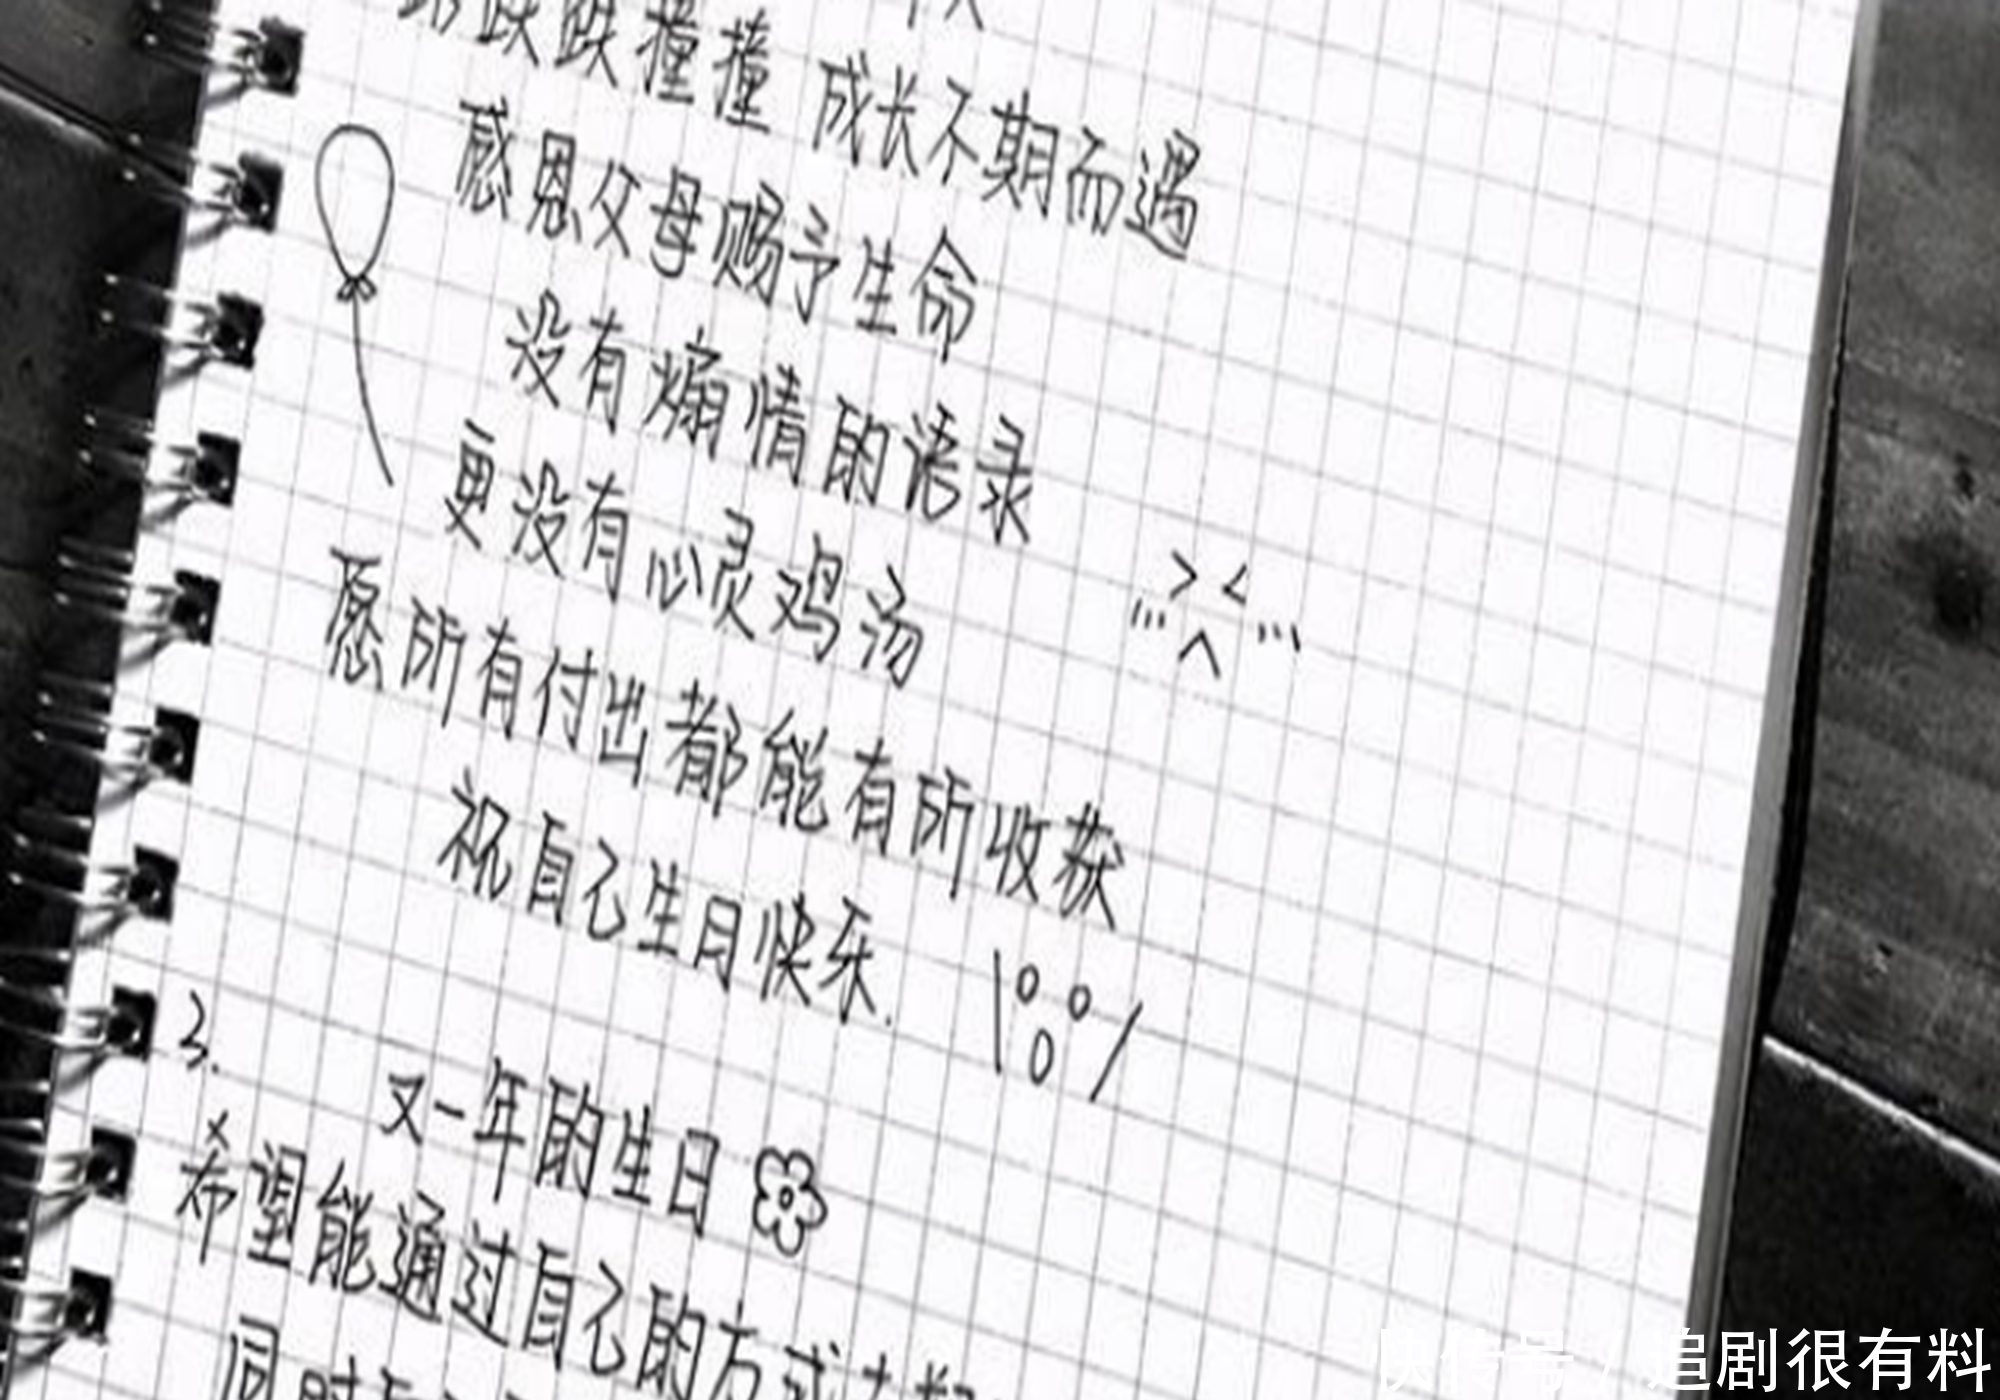 跌跌撞撞 成长不期而遇
感恩父母赐予生命
没有煽情的语录
更没有心灵鸡汤
愿所有付出都能有所收获
祝自己生日快乐.
3.
又一年的生日
希望能通过自己的方式
同时
快传号 / 追剧很有料